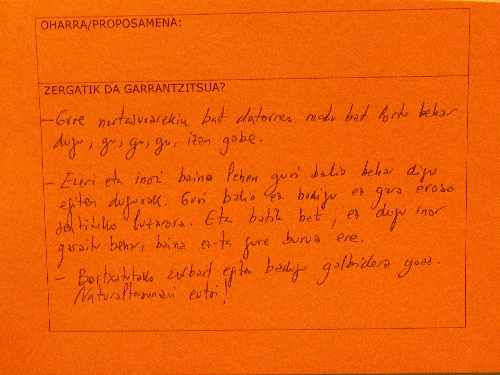 OHARRA/PROPOSAMENA:
ZERGATIK DA GARRANTZITSUA?
- Gure nortasunarekin bat datorren modu bat lortu behar
dugu, gu, gu, gu, izan gabe.
- Ezeri eta inori baino lehen guri balio behar digu
egiten dugunak. Guri balio ez badigu ez gara eroso
sentituko lutarora. Eta batik bat, ez dugu inor
garaitu behar, baina ez-ta gure burua ere.
- Bortxatutako zerbait egiten badugu galbidera goaz.
Naturaltasunari eutsi!